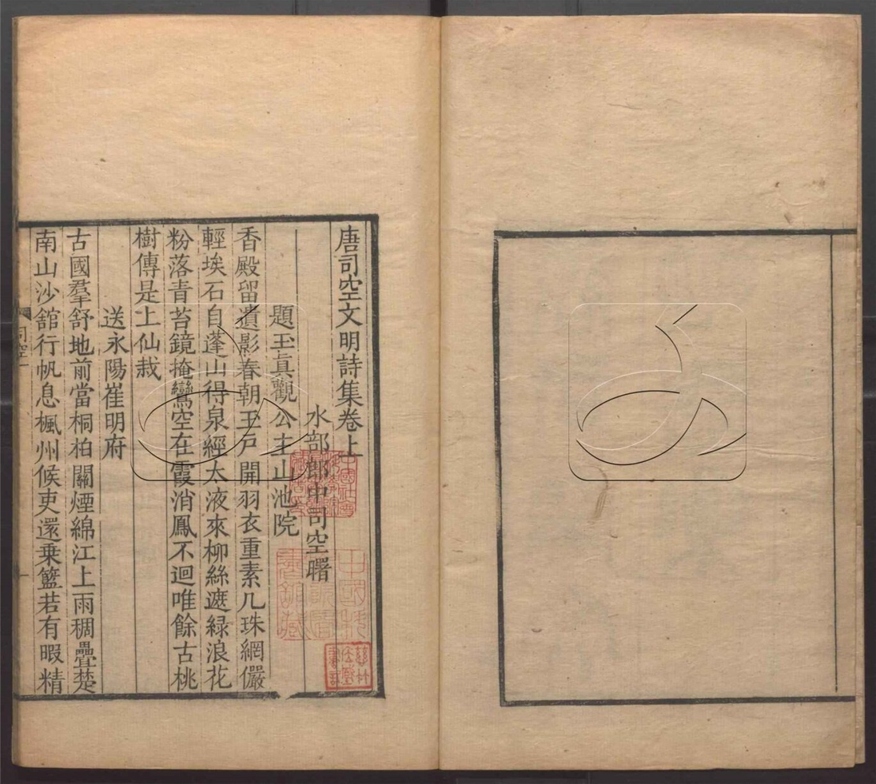 唐司空文明詩集卷上
水部郎中司空曙
題玉真觀公主山池院
香殿留遺影春朝玉戶開羽衣重素几珠網儼
輕埃石自蓬山得泉經太液來柳絲遮綠浪花
粉落青苔鏡掩鸞空在霞消鳳不迴唯餘古桃
樹傳是上仙栽
送永陽崔明府
古國羣舒地前當桐柏關煙綿江上雨稠疊楚
南山沙館行帆息楓州候吏還乗籃若有暇精
司空
一